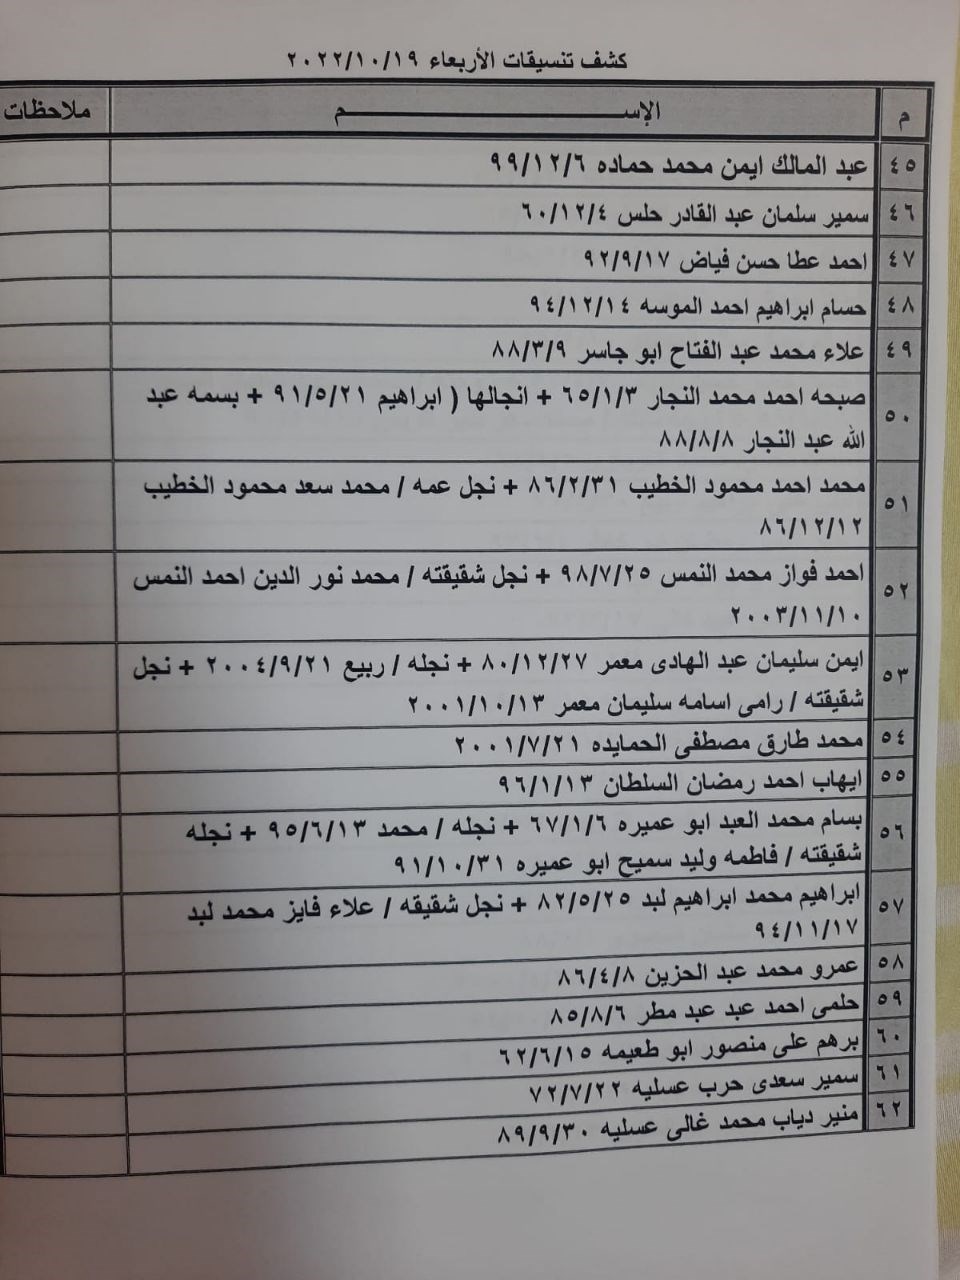 كشف تنسيقات الأربعاء ٢٠٢٢/١٠/١٩
م الإســـــــــــم ملاحظات
٤٥ عبد المالك ايمن محمد حماده ٩٩/١٢/٦
٤٦ سمير سلمان عبد القادر حلس ٦٠/١٢/٤
٤٧ احمد عطا حسن فياض ٩٢/٩/١٧
٤٨ حسام ابراهيم احمد الموسه ٩٤/١٢/١٤
٤٩ علاء محمد عبد الفتاح ابو جاسر ٨٨/٣/٩
٥٠ صبحه احمد محمد النجار ٦٥/١/٣ + انجالها ( ابراهيم ٩١/٥/٢١ + بسمه عبد
الله عبد النجار ٨٨/٨/٨
٥١ محمد احمد محمود الخطيب ٨٦/٢/٣١ + نجل عمه / محمد سعد محمود الخطيب
٨٦/١٢/١٢
٥٢ احمد فواز محمد النمس ٩٨/٧/٢٥ + نجل شقيقته / محمد نور الدين احمد النمس
٢٠٠٣/١١/١٠
٥٣ ايمن سليمان عبد الهادى معمر ٨٠/١٢/٢٧ + نجله / ربيع ٢٠٠٤/٩/٢١ + نجل
شقيقته / رامى اسامه سليمان معمر ٢٠٠١/١٠/١٣
٥٤ محمد طارق مصطفى الحمايده ٢٠٠١/٧/٢١
٥٥ ايهاب احمد رمضان السلطان ٩٦/١/١٣
٥٦ بسام محمد العبد ابو عميره ٦٧/١/٦ + نجله / محمد ٩٥/٦/١٣ + نجله
شقيقته / فاطمه وليد سميح ابو عميره ٩١/١٠/٣١
٥٧ ابراهيم محمد ابراهيم لبد ٨٢/٥/٢٥ + نجل شقيقه / علاء فايز محمد لبد
٩٤/١١/١٧
٥٨ عمرو محمد عبد الحزين ٨٦/٤/٨
٥٩ حلمى احمد عبد عبد مطر ٨٥/٨/٦
٦٠ برهم على منصور ابو طعيمه ٦٢/٦/١٥
٦١ سمير سعدى حرب عسليه ٧٢/٧/٢٢
٦٢ منير دياب محمد غالى عسليه ٨٩/٩/٣٠